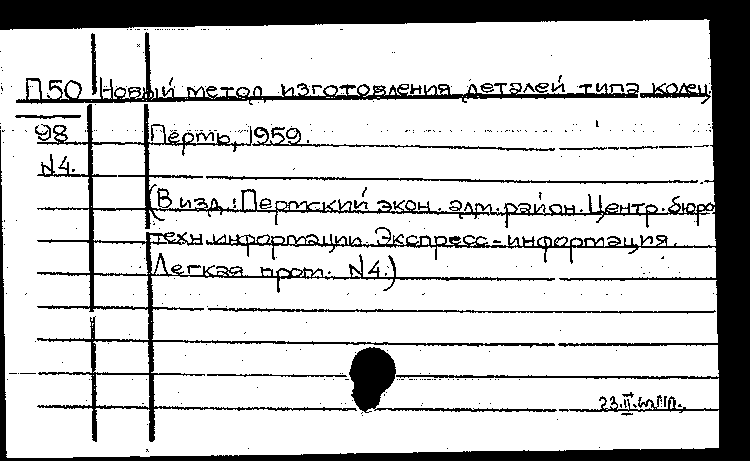 П50 Новый метод изготовления деталей типа колец.
98 Пермь, 1959.
N4.
(В изд.: Пермский экон. адм. район. Центр. бюро
техн. информации. Экспресс-информация.
Легкая пром. N4.)
23.II.